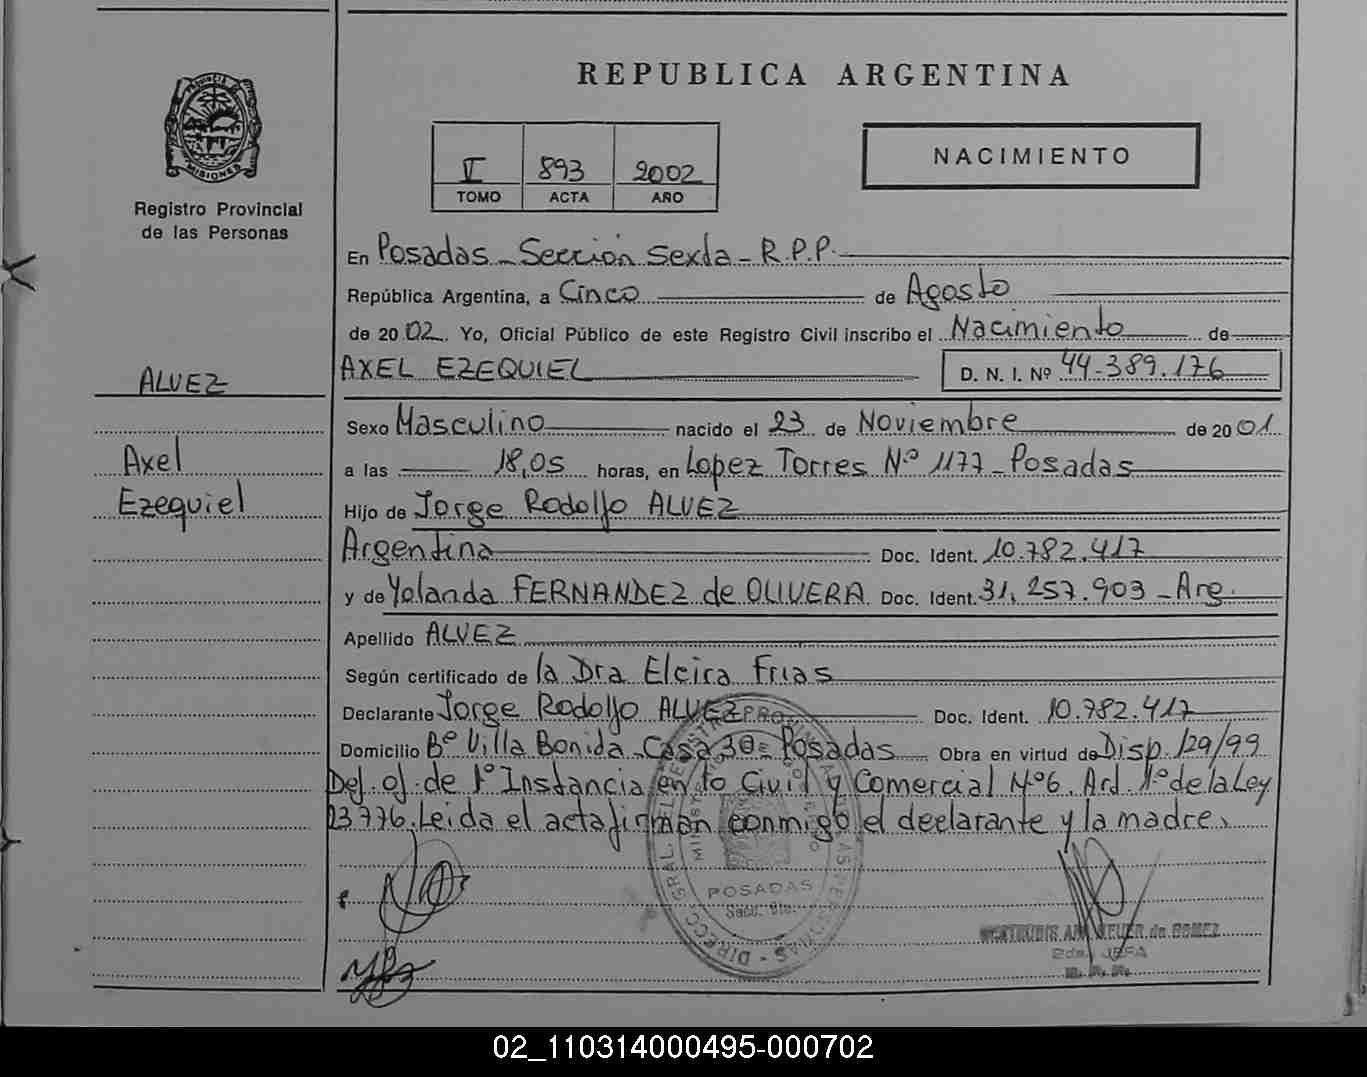 REPUBLICA ARGENTINA
PROVINCIA D
MISIONES
Registro Provincial
de las Personas
893 2002
TOMO ACTA AÑO
NACIMIENTO
En Posadas - Sección Sexta - R.P.P.
República Argentina, a Cinco de Agosto
de 2002. Yo, Oficial Público de este Registro Civil inscribo el Nacimiento de
AXEL EZEQUIEL D. N. I. Nº 44-389.176
ALVEZ
Axel
Ezequiel
Sexo Masculino nacido el 23 de Noviembre de 2001.
a las 18,05 horas, en Lopez Torres Nº 1177 - Posadas
Hijo de Jorge Rodolfo ALVEZ
Argentina Doc. Ident. 10.782.417
y de Yolanda FERNANDEZ de OLIVERA Doc. Ident. 31.257.903 - Arg.
Apellido ALVEZ
Según certificado de la Dra Elcira Frias
Declarante Jorge Rodolfo ALVEZ Doc. Ident. 10.782.417
Domicilio Bº Villa Bonida - Casa 30 - Posadas Obra en virtud de Disp. 129/99
Def. of. de 1º Instancia en lo Civil y Comercial Nº 6. Art. 1º de la Ley
23776. Leida el acta firman conmigo el declarante y la madre.
POSADAS
de GOMEZ
JEFA
02_110314000495-000702